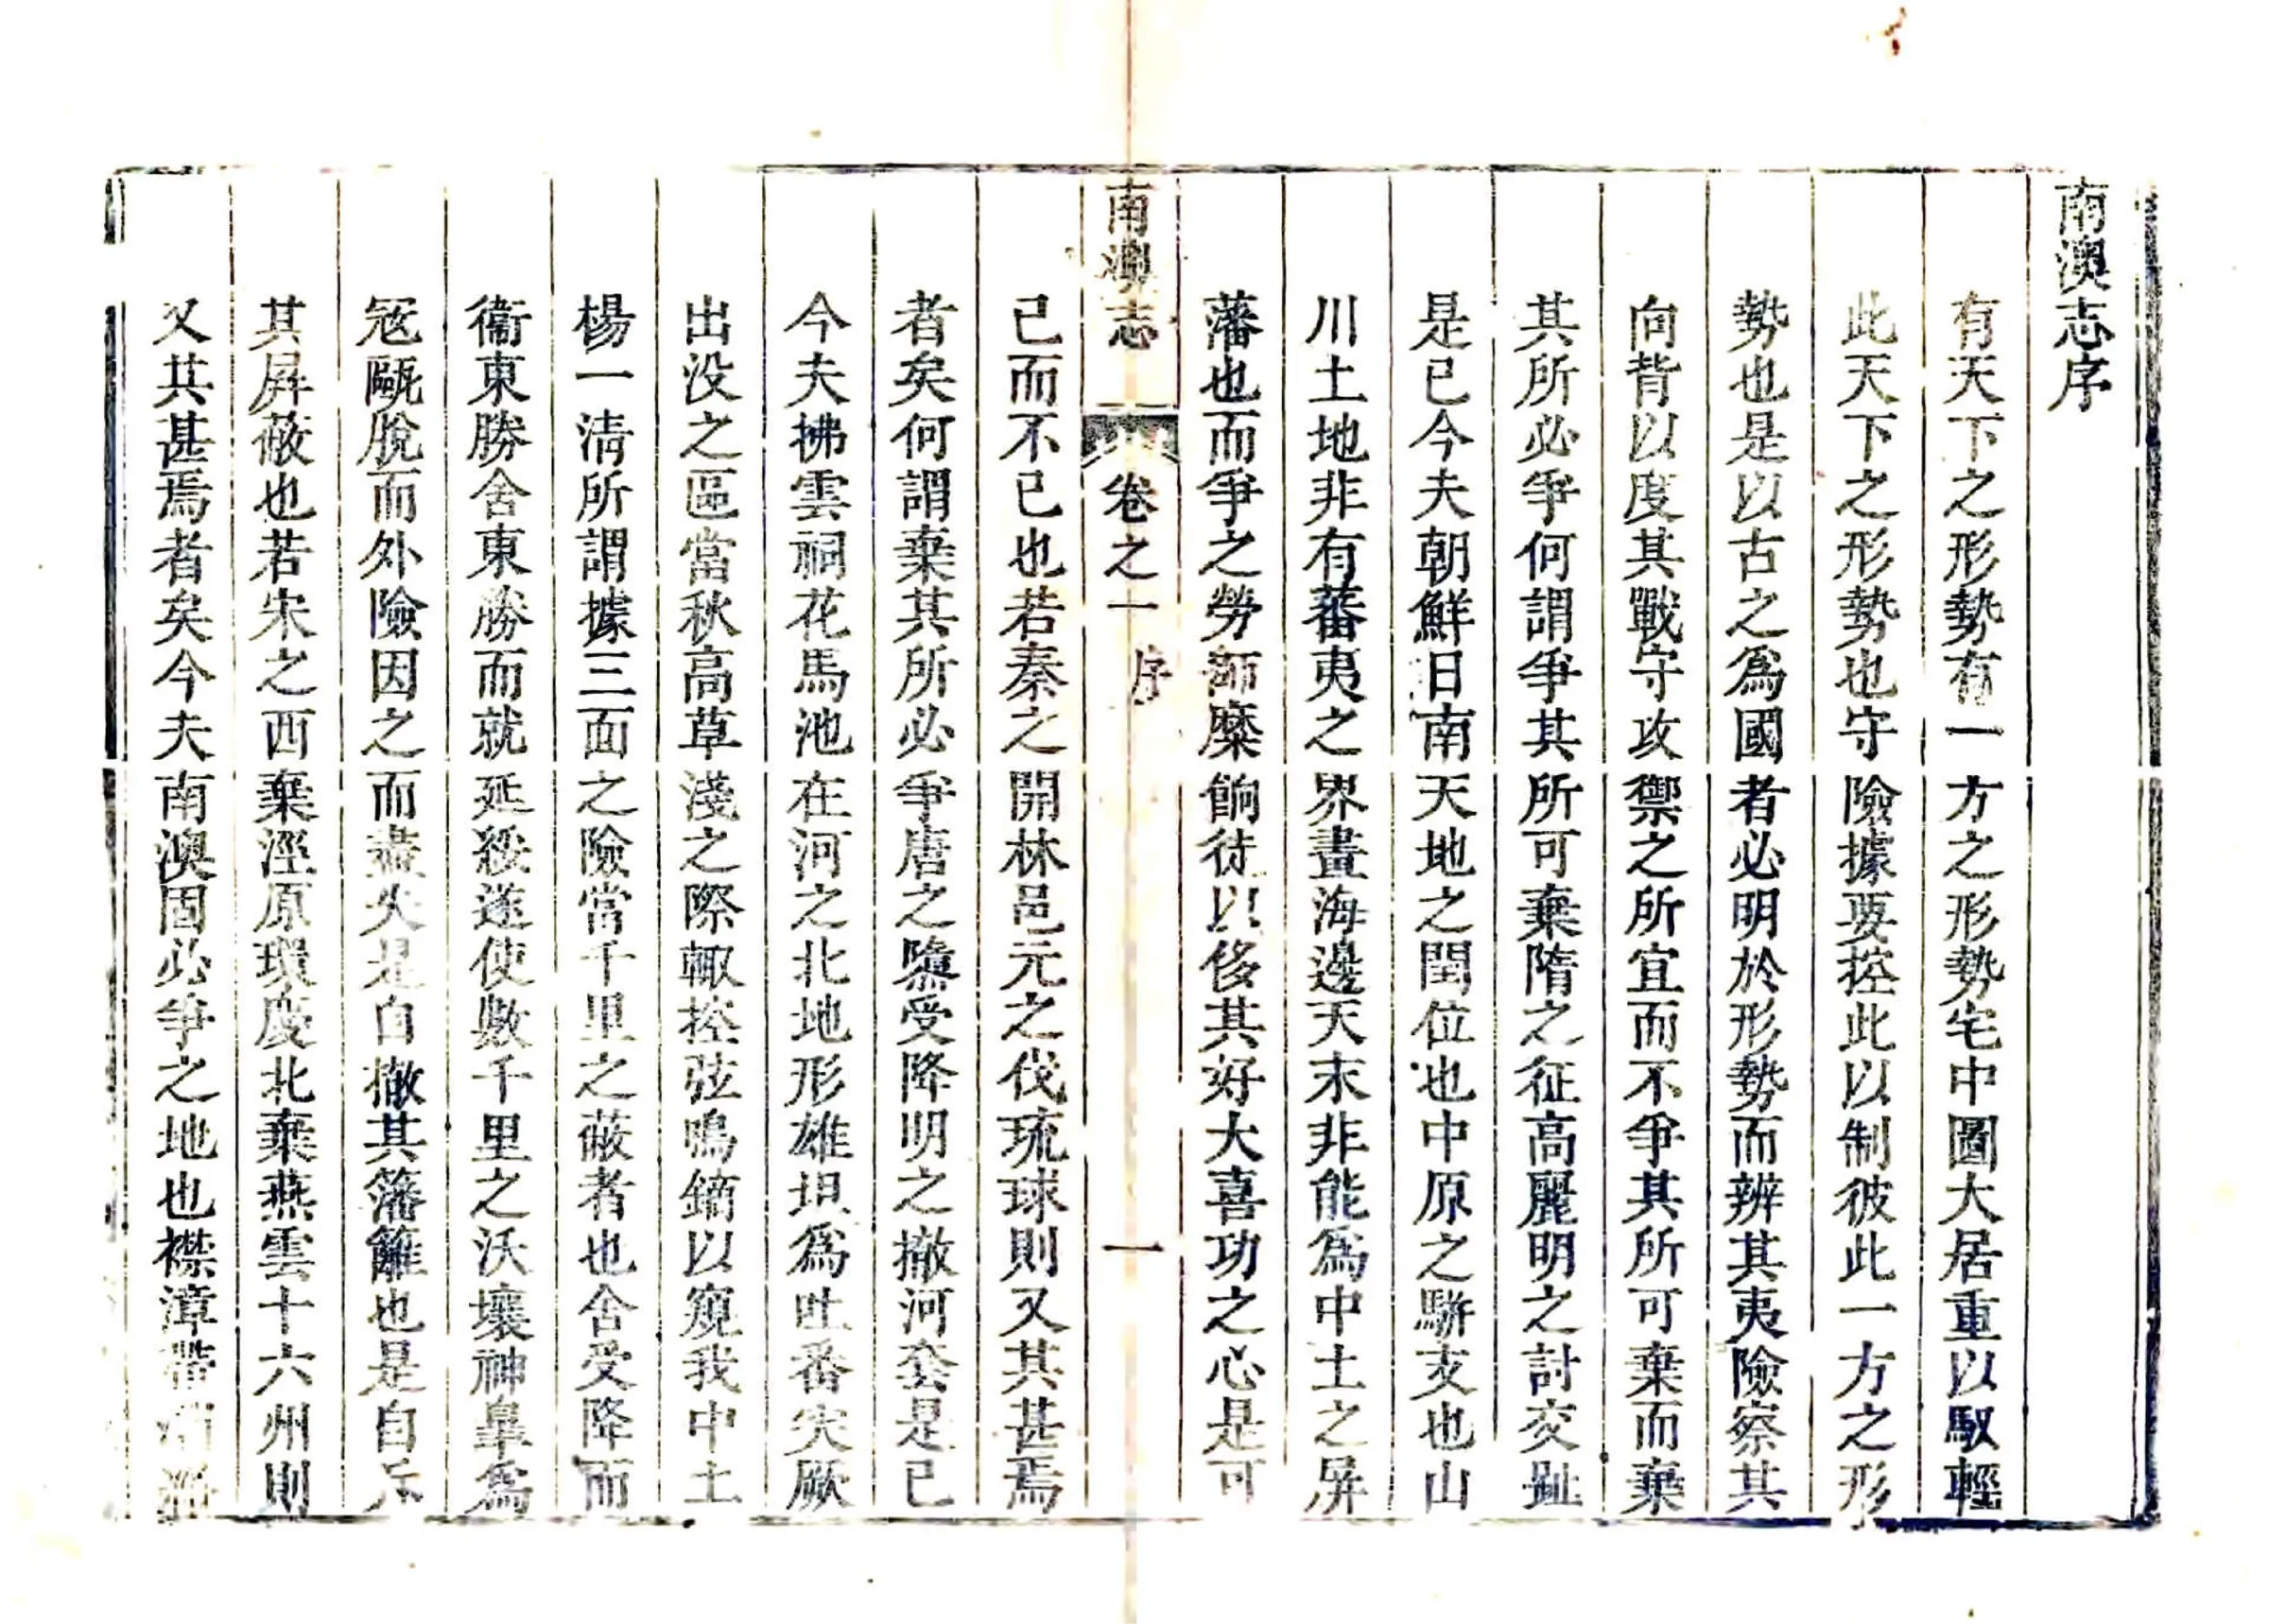 南澳志序
有天下之形勢有一方之形勢宅中圖大居重以馭輕
此天下之形勢也守險據要控此以制彼此一方之形
勢也是以古之為國者必明於形勢而辨其夷險察其
向背以度其戰守攻禦之所宜而不爭其所可棄而棄
其所必爭何謂爭其所可棄隋之征高麗明之討交趾
是已今夫朝鮮日南天地之閏位也中原之駢支也山
川土地非有蕃夷之界畫海邊天末非能為中土之屏
藩也而爭之勞師糜餉徒以侈其好大喜功之心是可
南澳志 卷之一 序 一
已而不已也若秦之開林邑元之伐琉球則又其甚焉
者矣何謂棄其所必爭唐之隳受降明之撤河套是已
今夫拂雲祠花馬池在河之北地形雄坦為吐番突厥
出没之區當秋高草淺之際輙控弦鳴鏑以窺我中土
楊一清所謂據三面之險當千里之蔽者也舍受降而
衞東勝舍東勝而就延綏遂使數千里之沃壤神臯為
冦甌脫而外險因之而盡失是自撤其籓籬也是自斥
其屏蔽也若宋之西棄涇原環慶北棄燕雲十六州則
又其甚焉者矣今夫南澳固必爭之地也襟漳帶